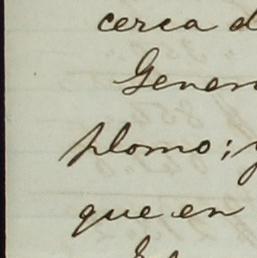 cerca d
Gener
plomo; y
que en